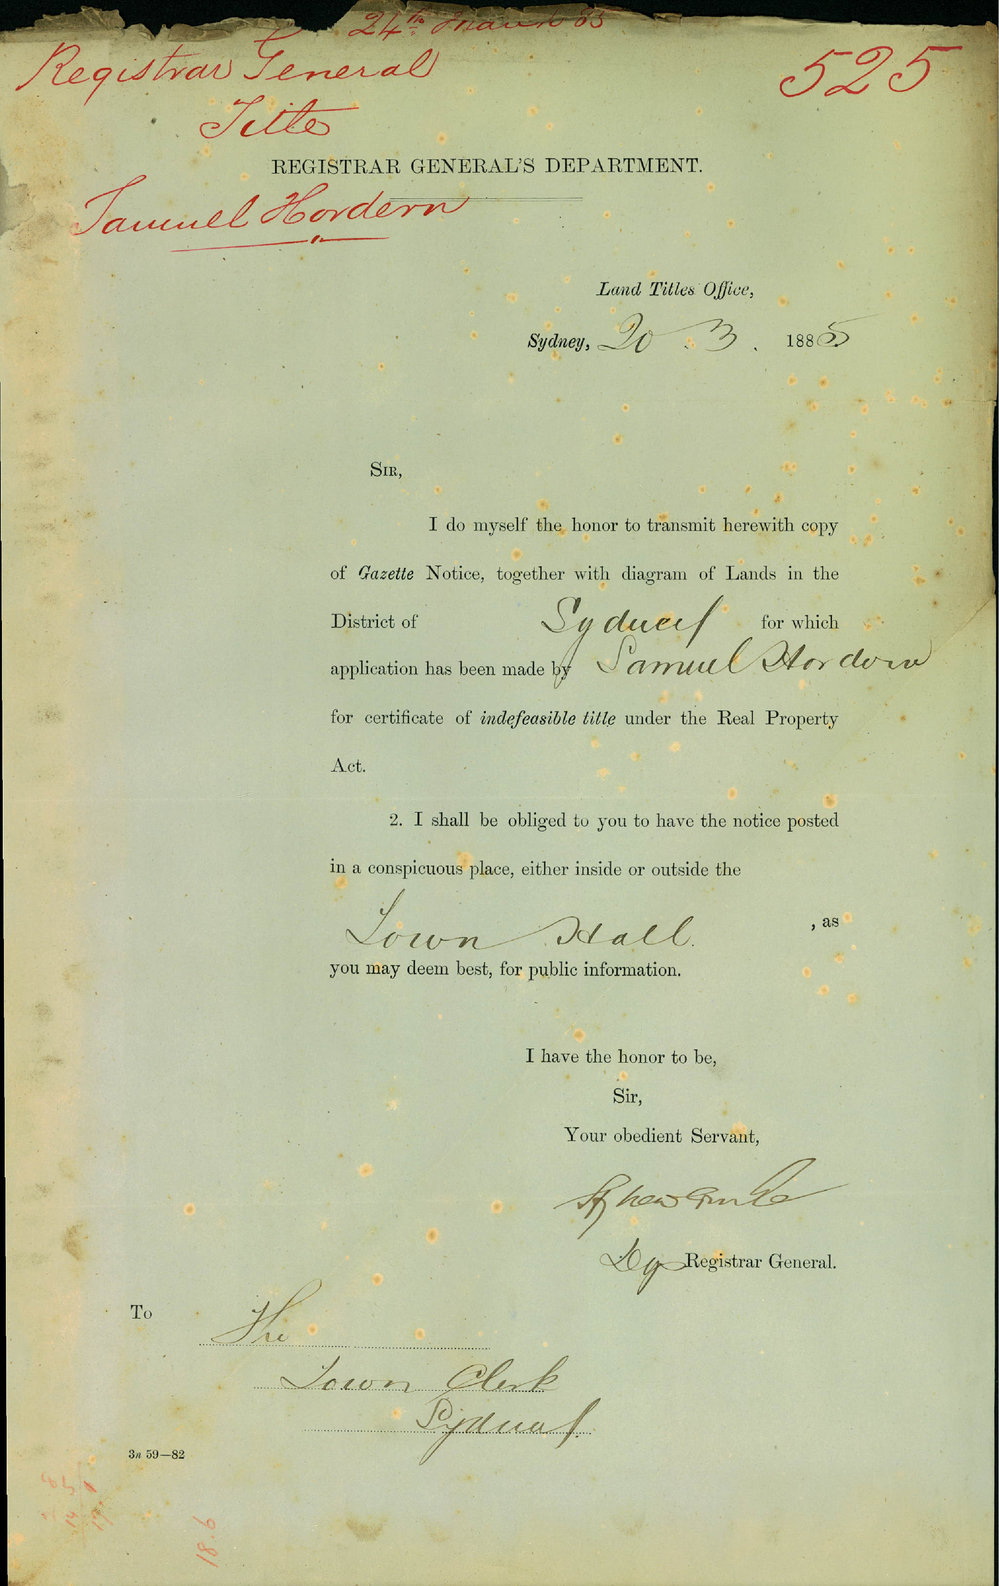 24th March 85
Registrar General
525
Title
REGISTRAR GENERAL'S DEPARTMENT.
Samuel Hordern
Land Titles Office,
Sydney, 20 . 3 . 1885
SIR,
I do myself the honor to transmit herewith copy
of Gazette Notice, together with diagram of Lands in the
District of Sydney for which
application has been made by Samuel Hordern
for certificate of indefeasible title under the Real Property
Act.
2. I shall be obliged to you to have the notice posted
in a conspicuous place, either inside or outside the
Town Hall. , as
you may deem best, for public information.
I have the honor to be,
Sir,
Your obedient Servant,
Dy Registrar General.
To The
Town Clerk
Sydney.
3n 59—82
18.6